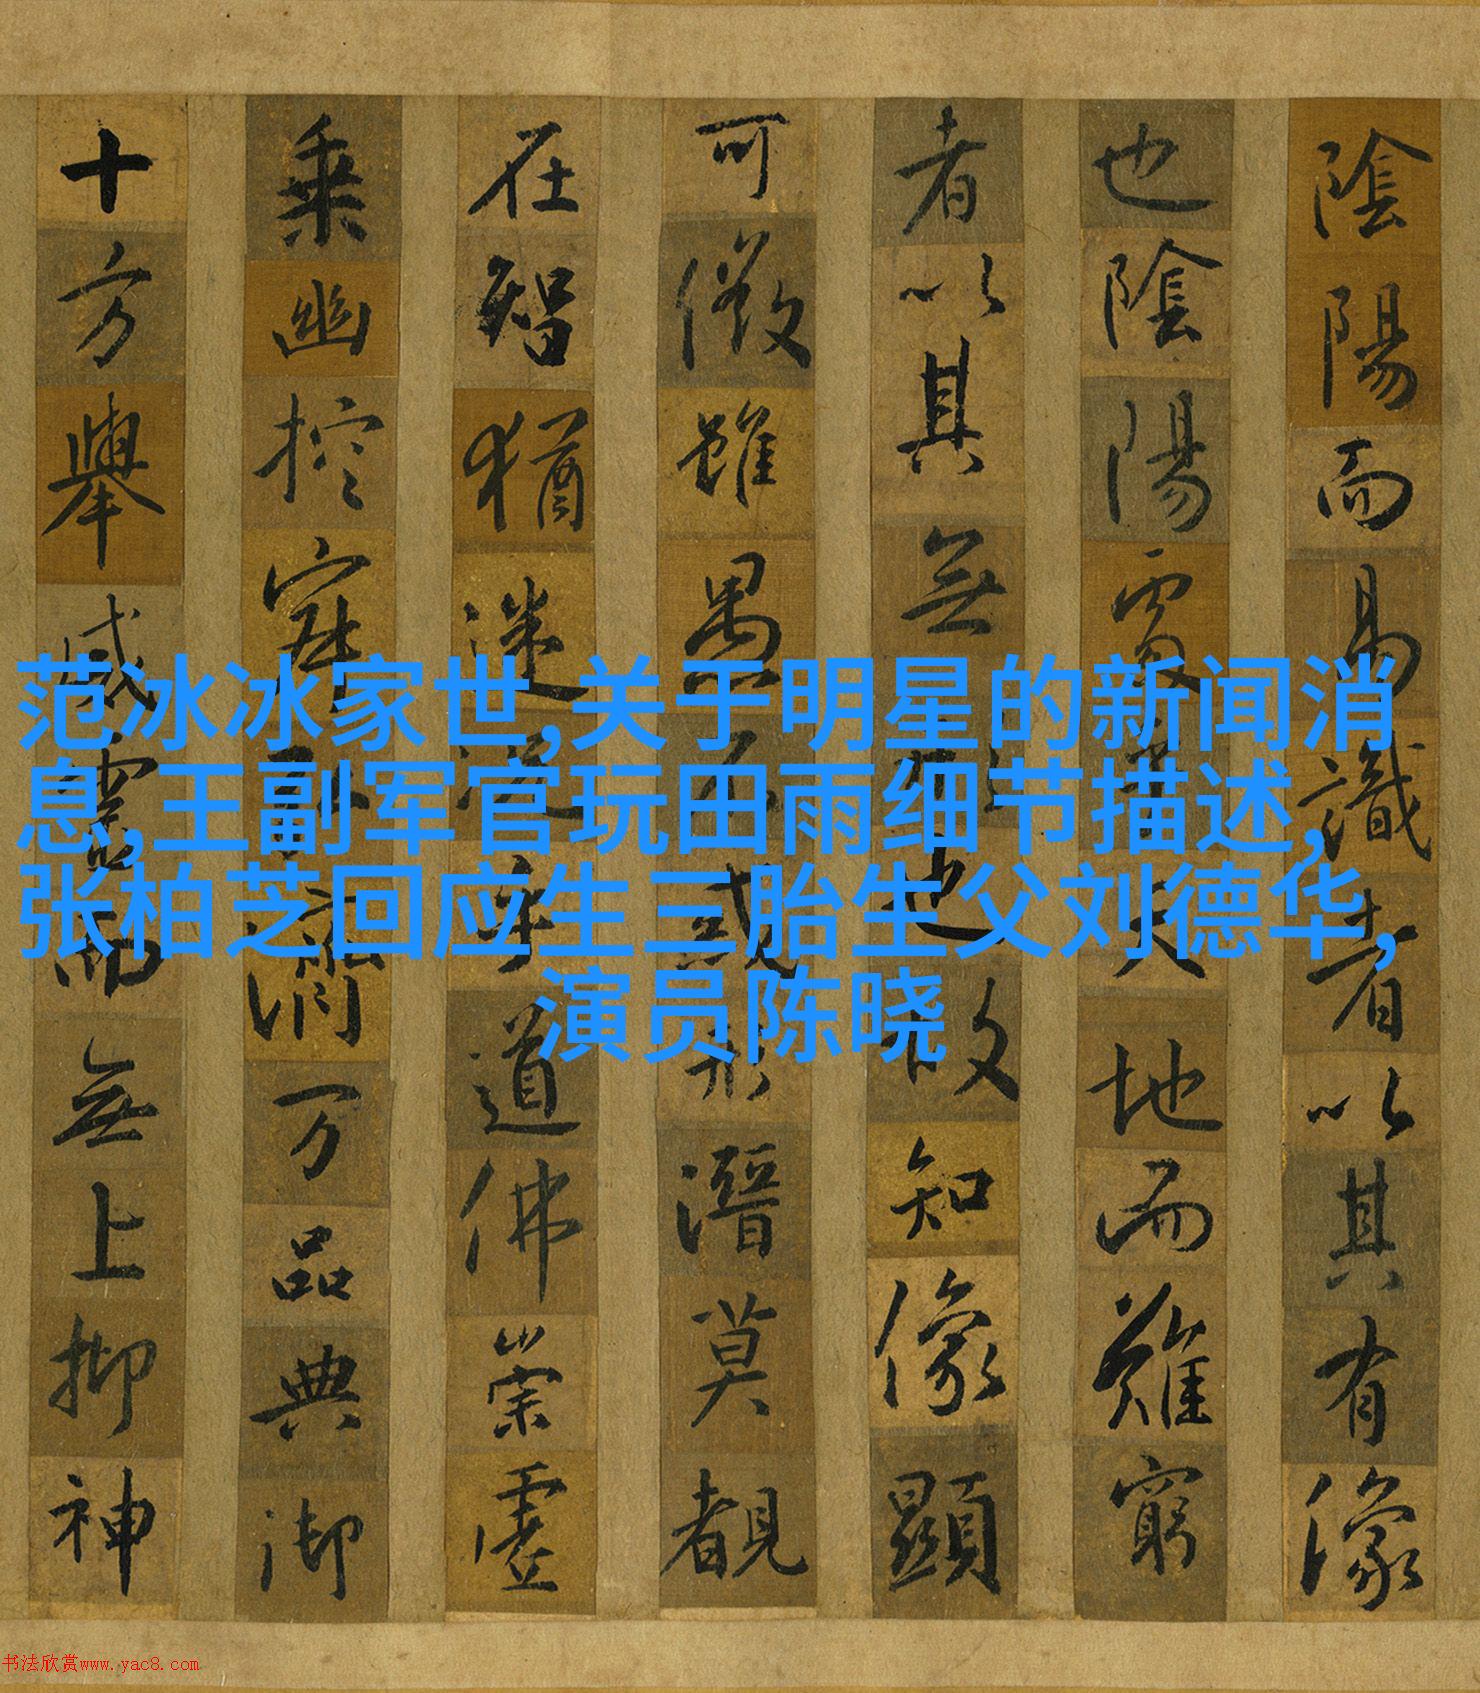 陰陽而易識者以其有像
也陰陽處天地而難窮
者以其無也故知像顯
可徵雖愚不惑形潛莫覩
在智猶迷況乎道佛崇虛
乗幽控寂濟万品典御
十方舉威靈而無上抑神
范冰冰家世,关于明星的新闻消
息,王副军官玩田雨细节描述,
张柏芝回应生三胎生父刘德华,
演员陈晓
书法欣赏www.yac8.com